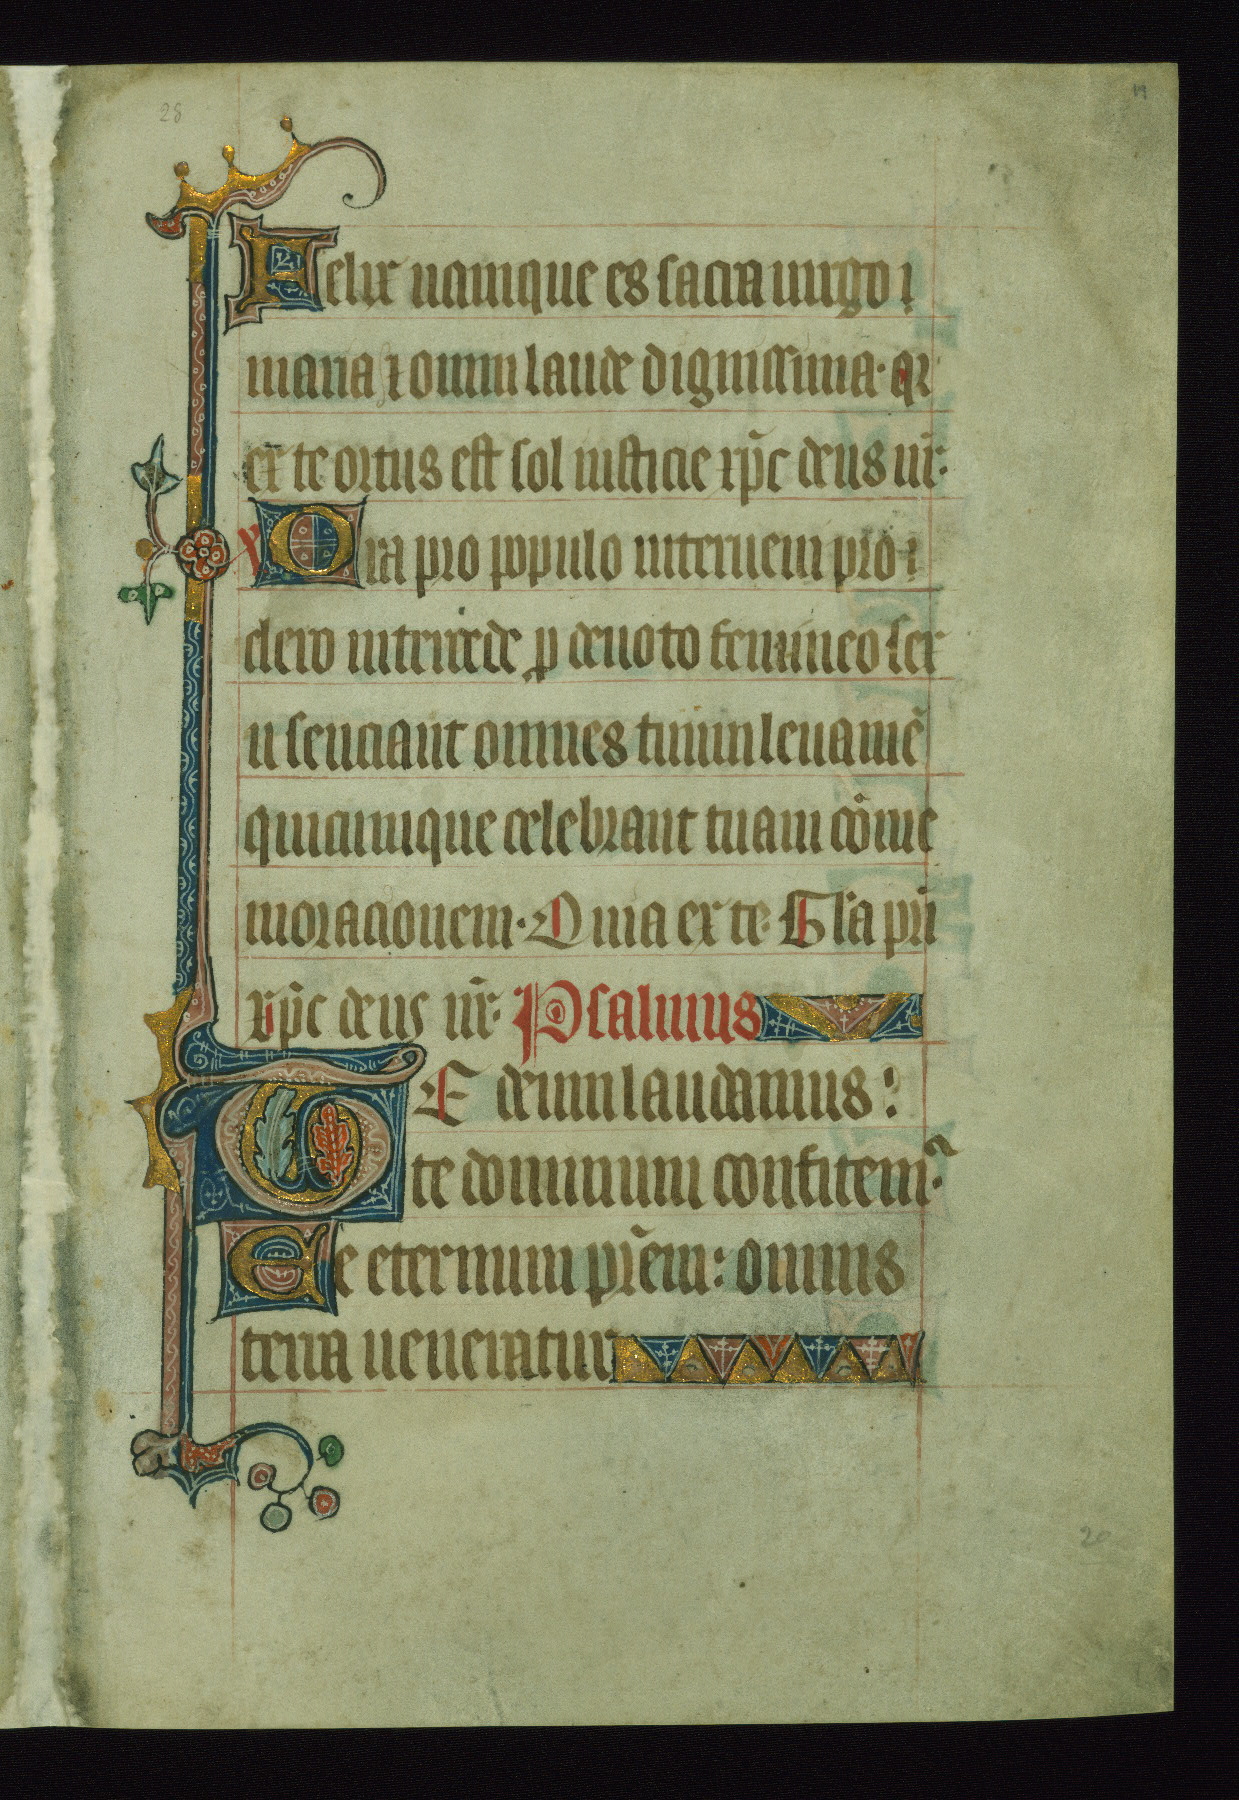 28
19
Felix namque es sacra uirgo
maria ⁊ omni laude dignissima. qr
ex te ortus est sol iusticie xp̄c deus nr̄.
V Ora pro populo interueni pro
clero intercede ꝑ deuoto femineo sex
u senciant omnes tuum leuamē
quicumque celebrant tuam cōme
moracionem. Quia ex te. Gl'a pr̄i
xp̄c deus nr̄. Psalmus
TE deum laudamus:
te dominum confitem᷑.
Te eternum pr̄em: omnis
terra ueneratur
20